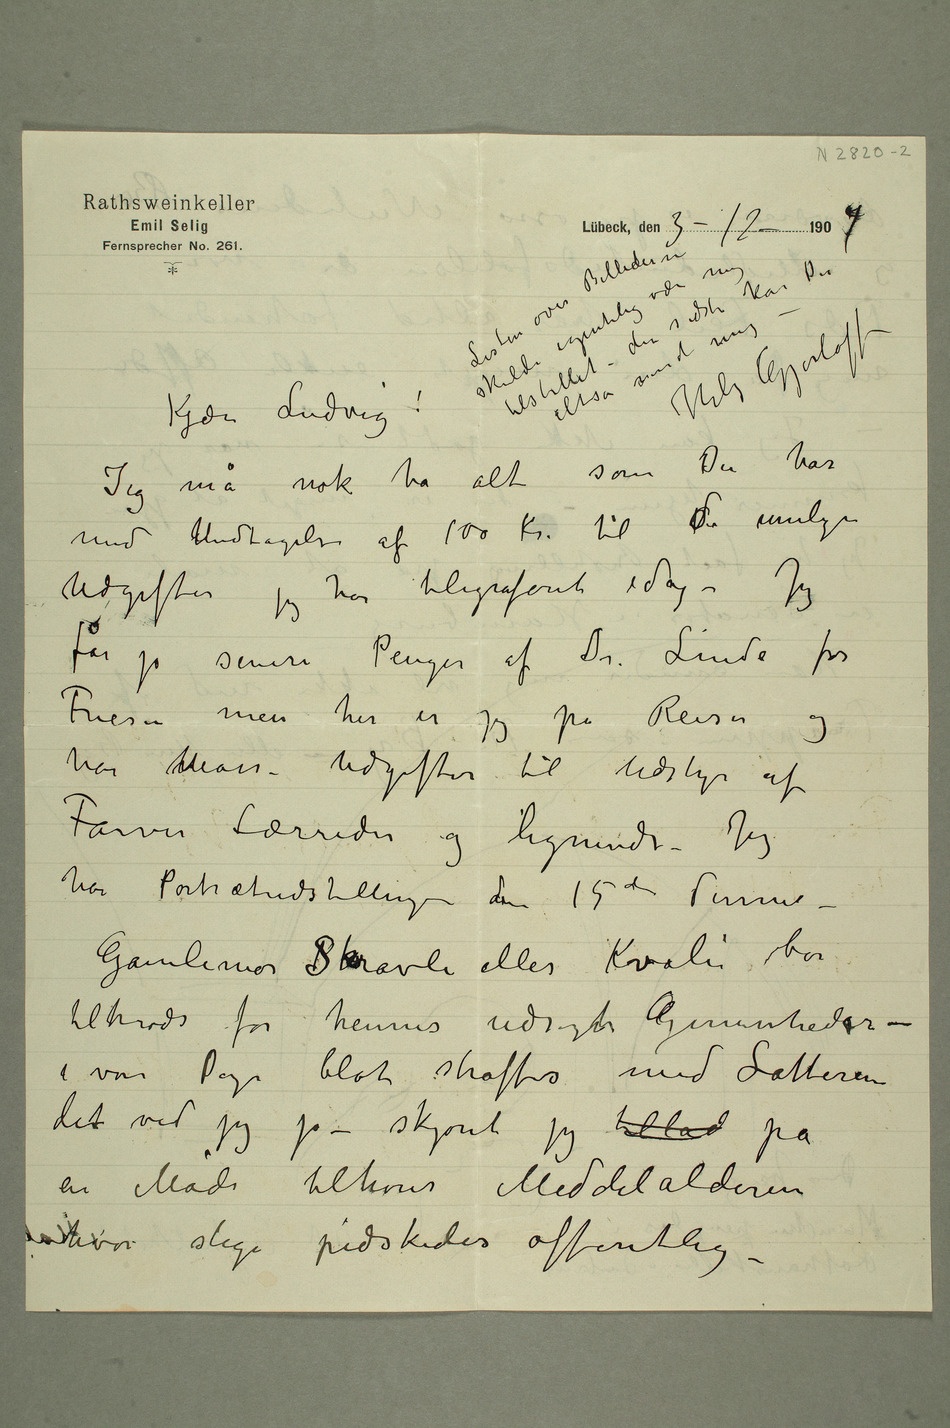 N 2820-2
Rathsweinkeller
Emil Selig
Fernsprecher No. 261.
Lübeck, den 3 – 12 – 1904
Listen over Billederne
skulde egentlig vær mig
tilstillet – den sidste kan Du
altså sende mig –
Hils Gjerløff –
Kjære Ludvig!
Jeg må nok ha alt som Du har
med Undtagelse af 100 Kr. til de mulige
Udgifter jeg har telegraferet idag – Jeg
får jo senere Penger af Dr. Linde for
Frisen men her er jeg på Reiser og
har Mass. Udgifter til Udstyr af
Farver Lærreder og lignende – Jeg
har Portrætudstillingen den 15de dennes –
Gamlemor Skravle eller Kvalie bør
tiltrods for hennes udsøgte Gemenheder –
i vore Dage blot straffes med Latteren
det ved jeg jo – skjønt jeg på
en Måde tilhører Middelalderen
hvor slige pidskedes offentlig –